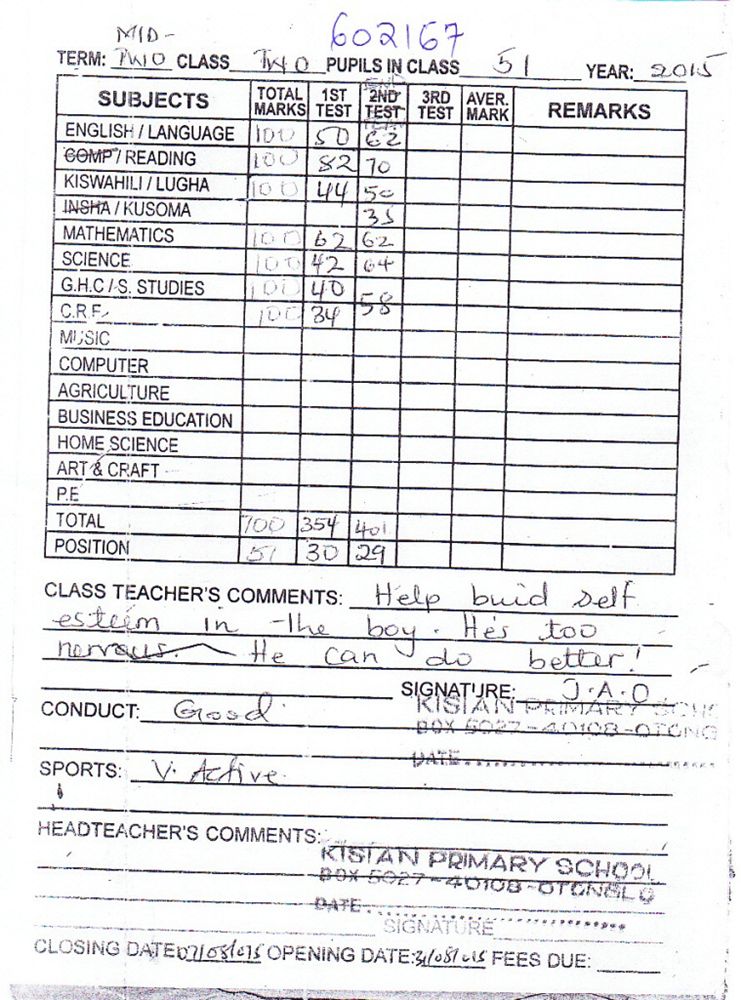 602167
MID-
TERM: TWO CLASS TWO PUPILS IN CLASS 51 YEAR: 2015
SUBJECTS TOTAL MARKS 1ST TEST END 2ND TEST TERM 3RD TEST AVER. MARK REMARKS
ENGLISH / LANGUAGE 100 50 62
COMP / READING 100 82 70
KISWAHILI / LUGHA 100 44 50
INSHA / KUSOMA 35
MATHEMATICS 100 62 62
SCIENCE 100 42 64
G.H.C / S. STUDIES 100 40 58
C.R.E 100 34
MUSIC
COMPUTER
AGRICULTURE
BUSINESS EDUCATION
HOME SCIENCE
ART & CRAFT
P.E
TOTAL 700 354 401
POSITION 51 30 29
CLASS TEACHER'S COMMENTS: Help buid self
esteem in the boy. He's too
nervous. He can do better!
SIGNATURE: J.A.O
CONDUCT: Good.
KISIAN PRIMARY SCHO
BOX 5027-40108-OTONG
DATE
SPORTS: V. Active.
HEADTEACHER'S COMMENTS:
KISIAN PRIMARY SCHOOL
BOX 5027-40108-OTONGLO
DATE
SIGNATURE
CLOSING DATE: OPENING DATE: FEES DUE: